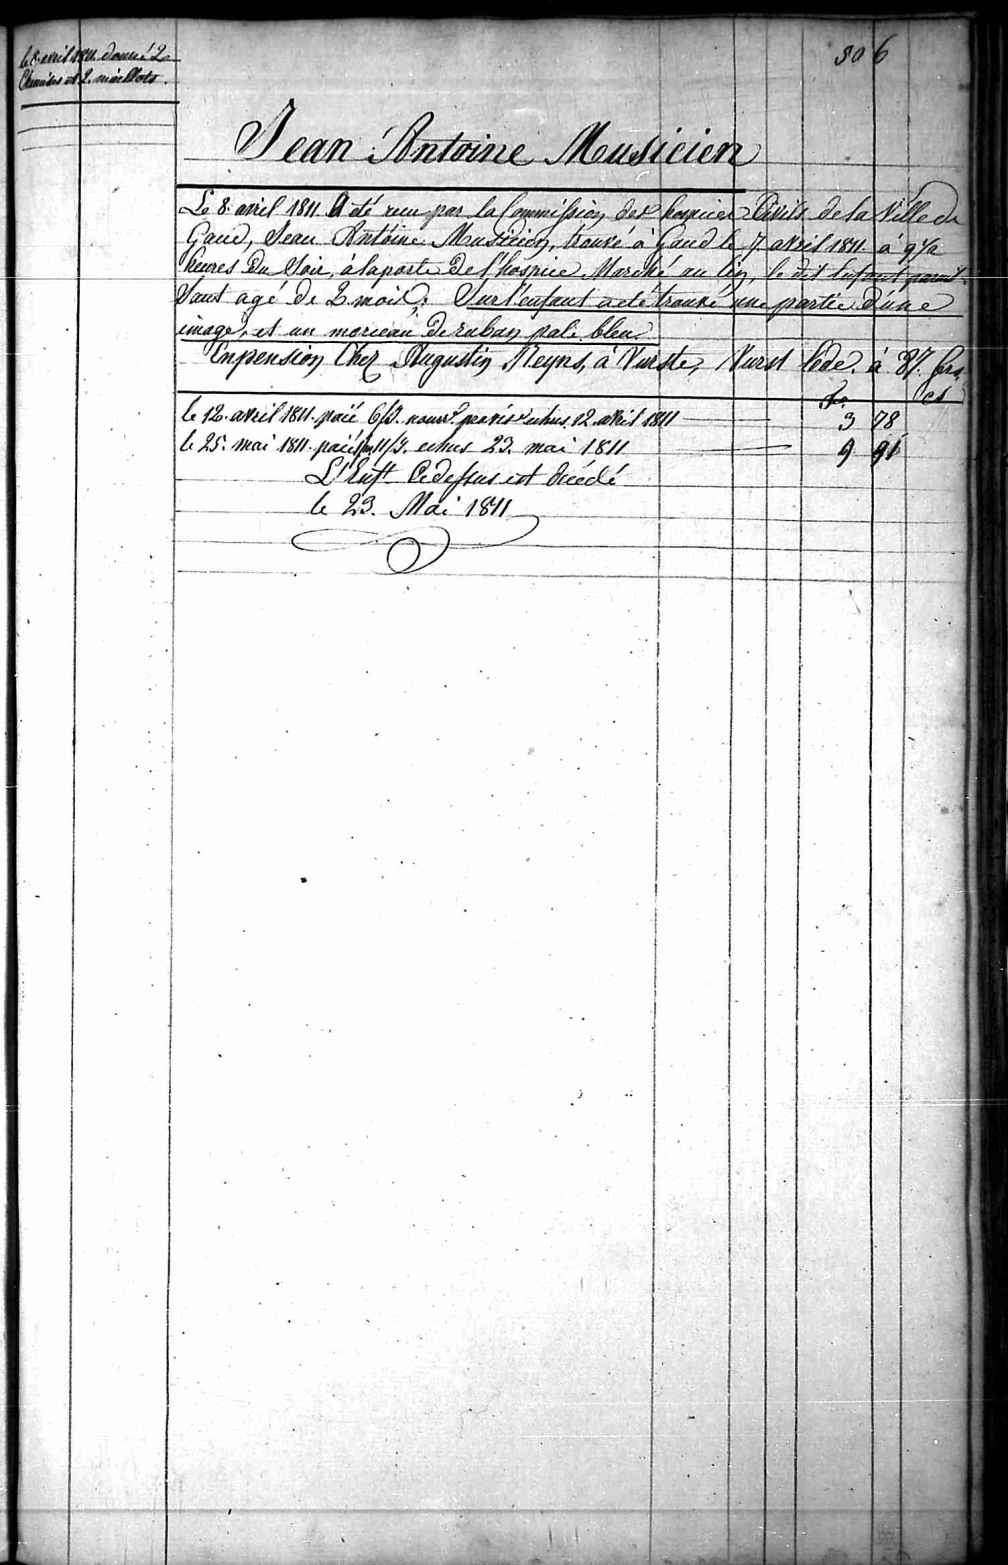 806
le 8 avril 1811. donné 2
Chemises et 2. maillots.
Jean Antoine Musicien
Le 8. avril 1811. A été reçu par la Commission des hospices Civils de la Ville de
Gand, Jean Antoine Musicien, trouvé à Gand le 7 avril 1811. à 9½
heures du Soir, à la porte de l'hospice Marché au lin, le dit Enfant parais-
sant agé de 2 mois. Sur l'enfant a été trouvé une partie d'une
image, et un morceau de ruban pale bleu.
En pension Chez Augustin Neyns, à Vurste, à 87. frs
fs. cs
le 12. avril 1811. paié 6/J. nourr. echus 12. avril 1811 3 78
le 25. mai 1811. paié echus 23. mai 1811 9 91
L'Enft Cidessus est Décédé
le 23. Mai 1811